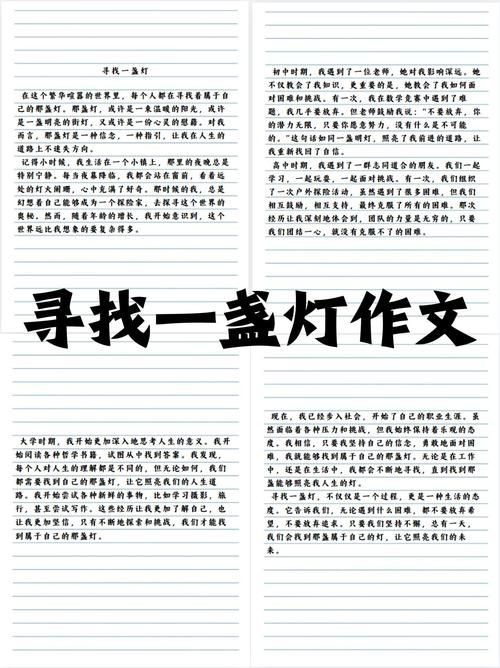 寻找一盏灯
在这个繁华喧嚣的世界里，每个人都在寻找着属于自
己的那盏灯。那盏灯，或许是一束温暖的阳光，或许
是一盏明亮的街灯，又或许是一份心灵的慰藉。对我
而言，那盏灯是一种信念，一种指引，让我在人生的
道路上不迷失方向。
记得小时候，我生活在一个小镇上，那里的夜晚总是
特别宁静。每当夜幕降临，我都会站在窗前，看着远
处的灯火阑珊，心中充满了好奇。那时候的我，总是
幻想着自己能够成为一个探险家，去探寻这个世界的
奥秘。然而，随着年龄的增长，我开始意识到，这个
世界远比我想象的要复杂得多。
初中时期，我遇到了一位老师，她对我影响深远。她
不仅教会了我知识，更重要的是，她教会了我如何面
对困难和挑战。有一次，我在数学竞赛中遇到了难
题，我几乎要放弃。但老师鼓励我说：“不要放弃，你
的潜力无限，只要你愿意努力，没有什么是不可能
的。”这句话如同一盏明灯，照亮了我前进的道路，让
我重新找回了自信。
高中时期，我遇到了一群志同道合的朋友。我们一起
学习，一起玩耍，一起面对挑战。有一次，我们组织
了一次户外探险活动，虽然遇到了很多困难，但我们
相互鼓励，相互支持，最终克服了所有的困难。那次
经历让我深刻地体会到，团队的力量是无穷的，只要
我们团结一心，就没有克服不了的困难。
寻找一盏灯作文
大学时期，我开始更加深入地思考人生的意义。我开
始阅读各种哲学书籍，试图从中找到答案。我发现，
每个人对人生的理解都是不同的，但无论如何，我们
都需要找到自己的那盏灯，让它照亮我们的人生道
路。我开始尝试各种新鲜的事物，比如学习摄影，旅
行，甚至尝试写作。这些经历让我更加了解自己，也
让我更加坚信，只有不断地探索和挑战，我们才能找
到属于自己的那盏灯。
现在，我已经步入社会，开始了自己的职业生涯。虽
然面临着各种压力和挑战，但我始终保持着乐观的态
度。我相信，只要我坚持自己的信念，勇敢地面对困
难，我就能够找到属于我的那盏灯。无论是在工作
中，还是在生活中，我都会不断地寻找，直到找到那
盏能够照亮我人生的灯。
寻找一盏灯，不仅仅是一个过程，更是一种生活的态
度。它告诉我们，无论遇到什么困难，都不要放弃希
望，不要放弃追求。只要我们坚持不懈，总有一天，
我们会找到那盏属于自己的灯，让它照亮我们的未
来。